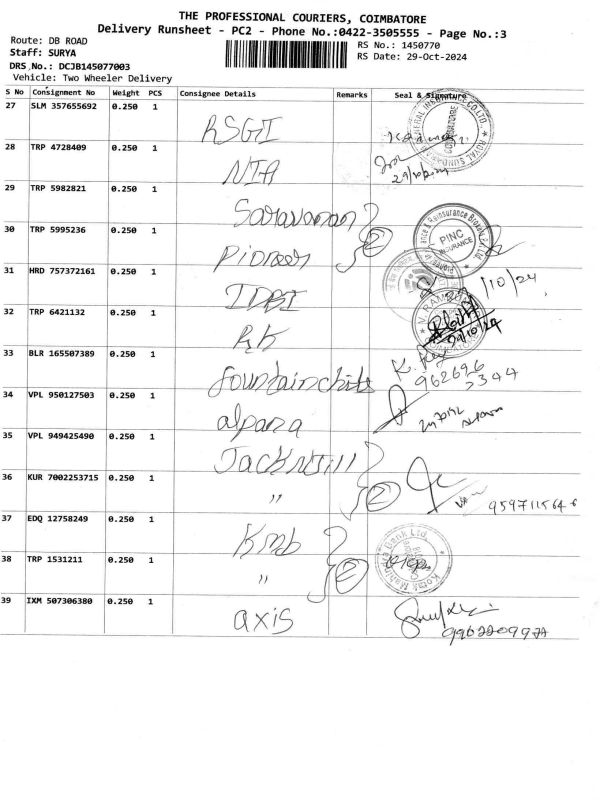 THE PROFESSIONAL COURIERS, COIMBATORE
Delivery Runsheet - PC2 - Phone No.:0422-3505555 - Page No.:3
Route: DB ROAD
RS No.: 1450770
Staff: SURYA
RS Date: 29-Oct-2024
DRS No.: DCJB145077003
Vehicle: Two Wheeler Delivery
S No Consignment No Weight PCS Consignee Details Remarks Seal & Signature
27 SLM 357655692 0.250 1 RSGI
28 TRP 4728409 0.250 1 NIA
29 TRP 5982821 0.250 1 Saravanan
30 TRP 5995236 0.250 1 Pioneer 2 PINC INSURANCE
31 HRD 757372161 0.250 1 IDBI
32 TRP 6421132 0.250 1 RK
33 BLR 165507389 0.250 1
34 VPL 950127503 0.250 1 alpana
35 VPL 949425490 0.250 1 JackNJill
36 KUR 7002253715 0.250 1 " 2
37 EDQ 12758249 0.250 1 Kmb
38 TRP 1531211 0.250 1 " 2
39 IXM 507306380 0.250 1 axis